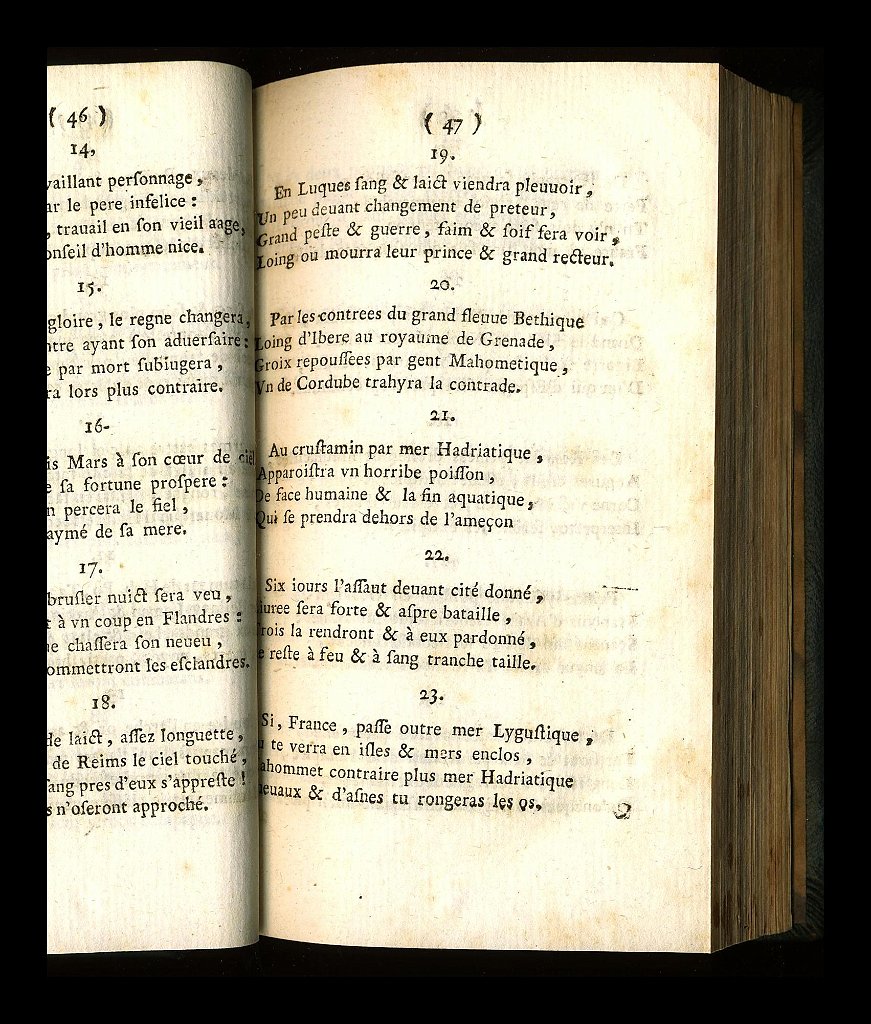 ( 46 )
14,
vaillant perſonnage,
ar le pere infelice :
, trauail en ſon vieil aage,
onſeil d'homme nice.
15.
gloire, le regne changera,
ntre ayant ſon aduerſaire :
e par mort ſubiugera,
ra lors plus contraire.
16-
is Mars à ſon cœur de ciel
e ſa fortune proſpere :
n percera le fiel,
aymé de ſa mere.
17.
bruſler nuict ſera veu,
t à vn coup en Flandres :
ue chaſſera ſon neueu,
ommettront les eſclandres.
18.
de laict, aſſez longuette,
de Reims le ciel touché,
ſang pres d'eux s'appreſte !
s n'oſeront approché.
( 47 )
19.
En Luques ſang & laict viendra pleuuoir,
Un peu deuant changement de preteur,
Grand peſte & guerre, faim & ſoif ſera voir,
Loing où mourra leur prince & grand recteur.
20.
Par les contrees du grand fleuue Bethique
Loing d'Ibere au royaume de Grenade,
Croix repouſſées par gent Mahometique,
Vn de Cordube trahyra la contrade.
21.
Au cruſtamin par mer Hadriatique,
Apparoiſtra vn horribe poiſſon,
De face humaine & la fin aquatique,
Qui ſe prendra dehors de l'ameçon
22.
Six iours l'aſſaut deuant cité donné,
iuree ſera forte & aſpre bataille,
Trois la rendront & à eux pardonné,
e reſte à feu & à ſang tranche taille.
23.
Si, France, paſſe outre mer Lyguſtique,
u te verra en iſles & mers enclos,
ahommet contraire plus mer Hadriatique
heuaux & d'aſnes tu rongeras les os.